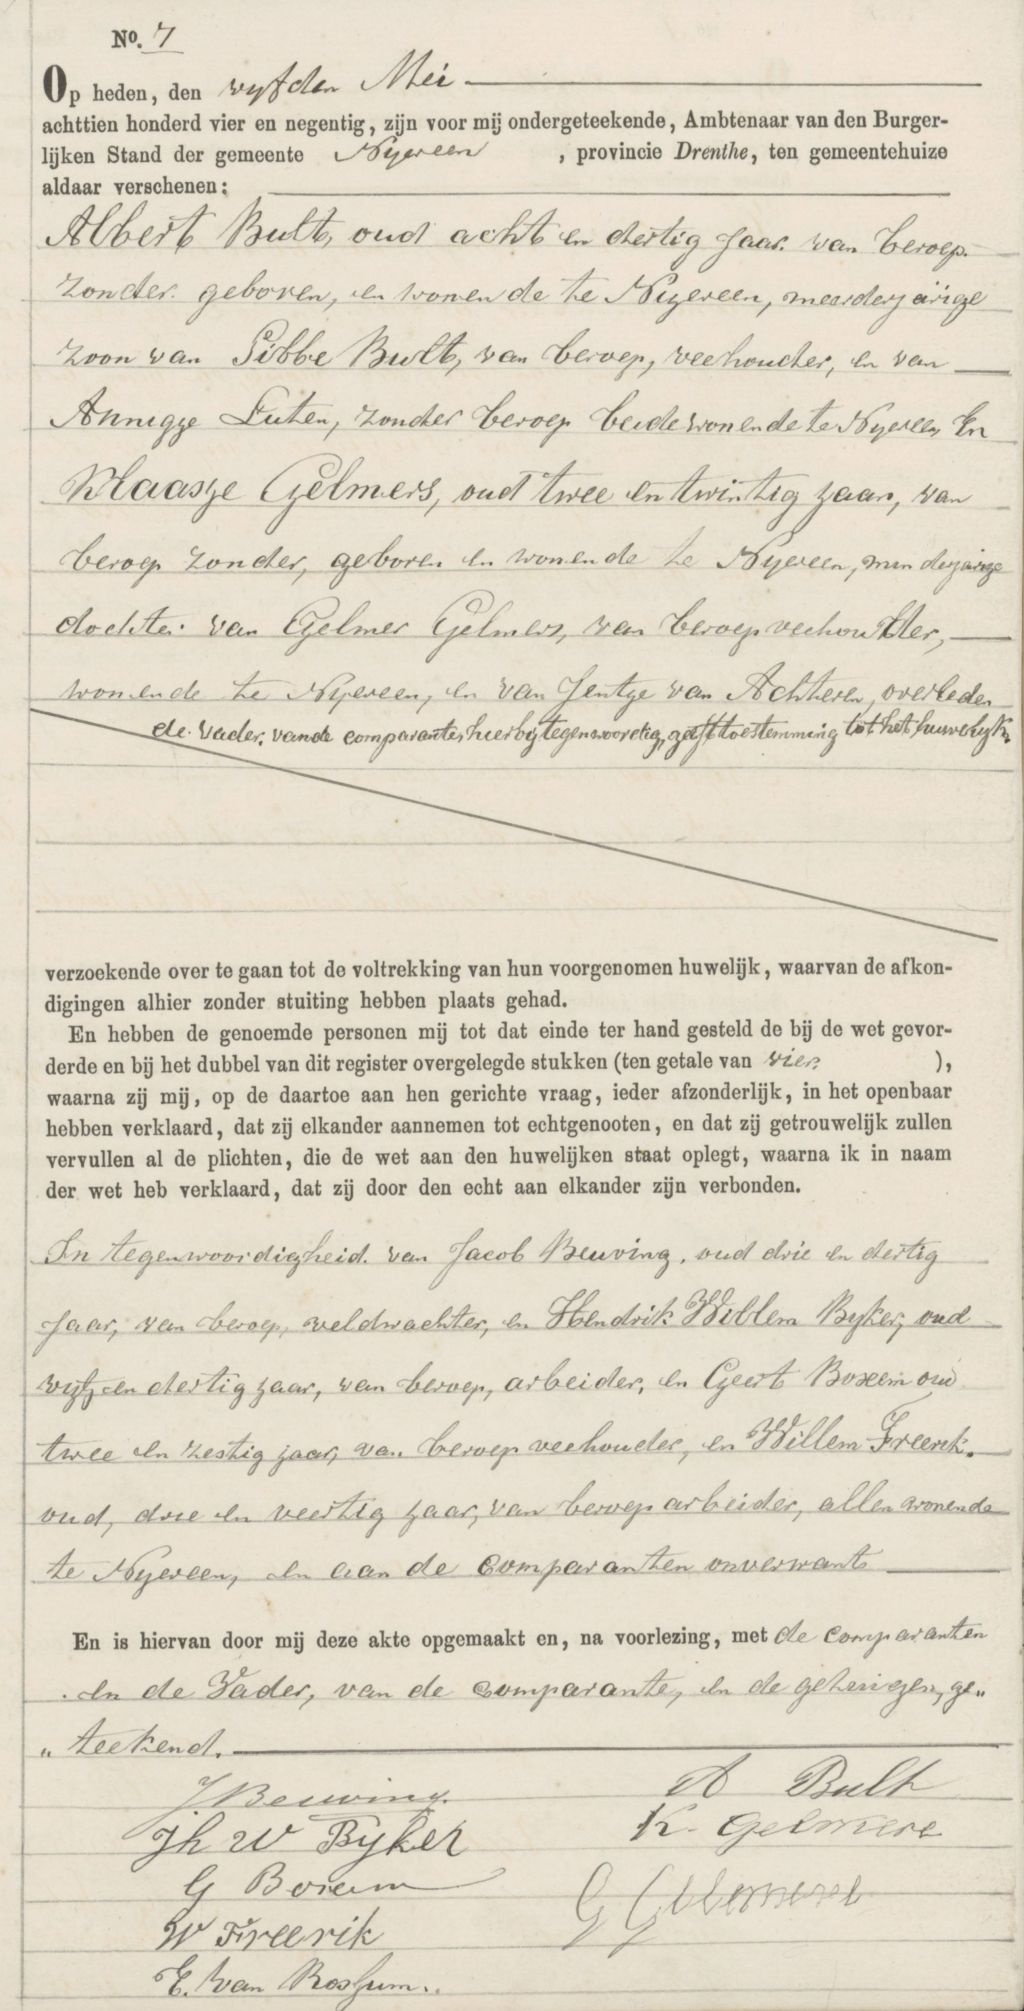 No. 7
Op heden, den vyfden Mei
achttien honderd vier en negentig, zijn voor mij ondergeteekende, Ambtenaar van den Burger-
lijken Stand der gemeente Nyeveen, provincie Drenthe, ten gemeentehuize
aldaar verschenen:
Albert Bult, oud acht en dertig Jaar. van beroep.
zonder. geboren, en wonende te Nyeveen, meerderjarige
zoon van Sibbe Bult, van beroep, veehouder, en van
Annigje Luten, zonder beroep beide wonende te Nyeveen En
Klaasje Gelmers, oud twee en twintig jaar, van
beroep zonder, geboren en wonende te Nyeveen, minderjarige
dochter van Gelmer Gelmers, van beroep veehoudter,
wonende te Nyeveen, en van Jentje van Achteren, overleden
de Vader, van de comparante, hierby tegenwoordig, geeft toestemming tot het huwelyk.
verzoekende over te gaan tot de voltrekking van hun voorgenomen huwelijk, waarvan de afkon-
digingen alhier zonder stuiting hebben plaats gehad.
En hebben de genoemde personen mij tot dat einde ter hand gesteld de bij de wet gevor-
derde en bij het dubbel van dit register overgelegde stukken (ten getale van vier. ),
waarna zij mij, op de daartoe aan hen gerichte vraag, ieder afzonderlijk, in het openbaar
hebben verklaard, dat zij elkander aannemen tot echtgenooten, en dat zij getrouwelijk zullen
vervullen al de plichten, die de wet aan den huwelijken staat oplegt, waarna ik in naam
der wet heb verklaard, dat zij door den echt aan elkander zijn verbonden.
In tegenwoordigheid. van Jacob Beuving, oud drie en dertig
Jaar, van beroep, veldwachter, en Hendrik Willem Byker, oud
vyf en dertig jaar, van beroep, arbeider, en Geert Boxem oud
twee en zestig jaar, van beroep veehouder, en Willem Freerik.
oud, drie en veertig jaar, van beroep arbeider, allen wonende
te Nyeveen, en aan de Comparanten onverwant
En is hiervan door mij deze akte opgemaakt en, na voorlezing, met de Comparanten
en de Vader, van de Comparante, en de getuigen, ge„
„ teekend.
J. Beuving.
A Bult
Jh W Byker
K. Gelmers
G Boxem
G Gelmers
W Freerik
E. Van Rossum.